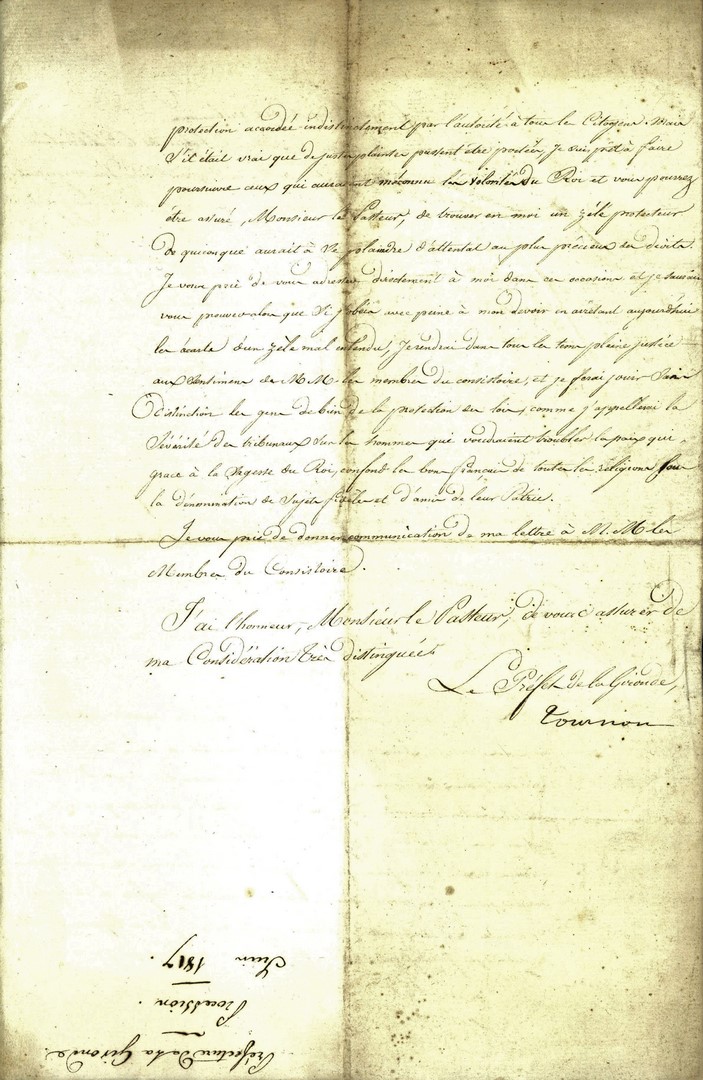 protection accordée indistinctement par l'autorité à tous les Citoyens. Mais
s'il était vrai que de justes plaintes pussent être portées, Je suis prêt à faire
poursuivre ceux qui auraient méconnu les volontés du Roi et vous pourrez
être assuré, Monsieur le Pasteur, de trouver en moi un zélé protecteur
de quiconque aurait à se plaindre d'attentat au plus précieux des droits.
Je vous prie de vous adresser directement à moi dans ces occasions et je saurai
vous prouver alors que si j'obéis avec peine à mon devoir en arrêtant aujourd'hui
les écarts d'un zèle mal entendu, Je rendrai dans tous les tems pleine justice
aux sentimens de M.M. les membres du consistoire; et je ferai jouir sans
distinction les gens de bien de la protection des lois, comme j'appellerai la
sévérité des tribunaux sur les hommes qui voudraient troubler la paix qui,
grace à la sagesse du Roi, confond les bons français de toutes les religions sous
la dénomination de sujets fidèles et d'amis de leur Patrie.
Je vous prie de donner communication de ma lettre à M.M. les
Membres du Consistoire.
J'ai l'honneur, Monsieur le Pasteur, de vous assurer de
ma Considération très distinguée.
Le Préfet de la Gironde,
Tournon
Préfecture de la Gironde.
Procession.
Juin 1817.